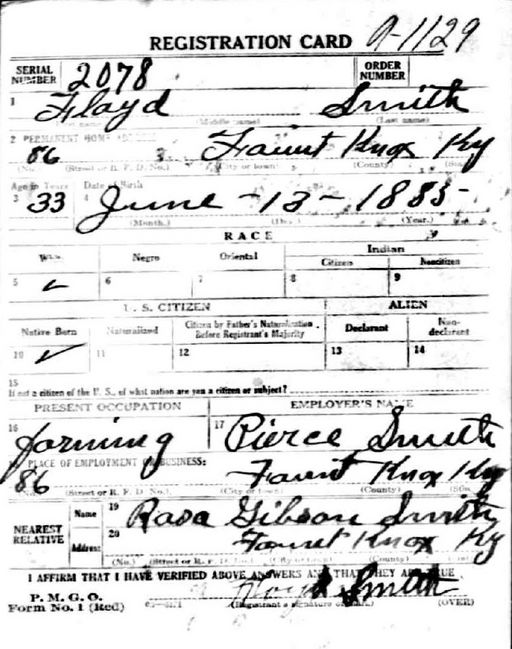 REGISTRATION CARD A-1129
SERIAL NUMBER 2078 ORDER NUMBER
1 Floyd Smith
(Middle name) (Last name)
2 PERMANENT HOME
86 Faint Knox Ky
(No.) (Street or R. F. D. No.) (City or town) (County)
Age in Years Date of Birth
3 33 4 June - 13 - 1885 -
(Month.) (Day.) (Year.)
RACE
White Negro Oriental Indian
Citizen Noncitizen
5 ✓ 6 7 8 9
U. S. CITIZEN ALIEN
Native Born Naturalized Citizen by Father's Naturalization Before Registrant's Majority Declarant Non-declarant
10 ✓ 11 12 13 14
15
If not a citizen of the U. S., of what nation are you a citizen or subject?
PRESENT OCCUPATION EMPLOYER'S NAME
16 farming 17 Pierce Smith
PLACE OF EMPLOYMENT OR BUSINESS:
86 Faint Knox Ky
(Street or R. F. D. No.) (City or town) (County)
NEAREST RELATIVE
Name 19 Rosa Gibson Smith
Address 20 Knox Ky
(No.) (Street or R. F. D. No.) (City or town) (County)
I AFFIRM THAT I HAVE VERIFIED ABOVE ANSWERS AND THAT THEY ARE TRUE
P. M. G. O.
Form No. 1 (Red) Floyd Smith
(Registrant's signature or mark) (OVER)